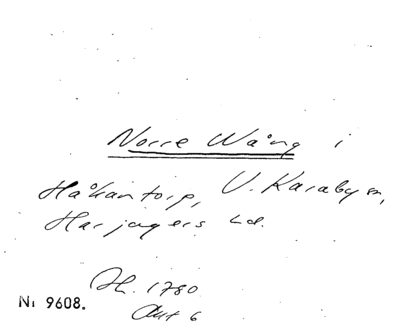 Norre Wång i
Håkantorp, V. Karaby sn,
Harjagers hd.
H. 1780
Akt 6
Nr 9608.